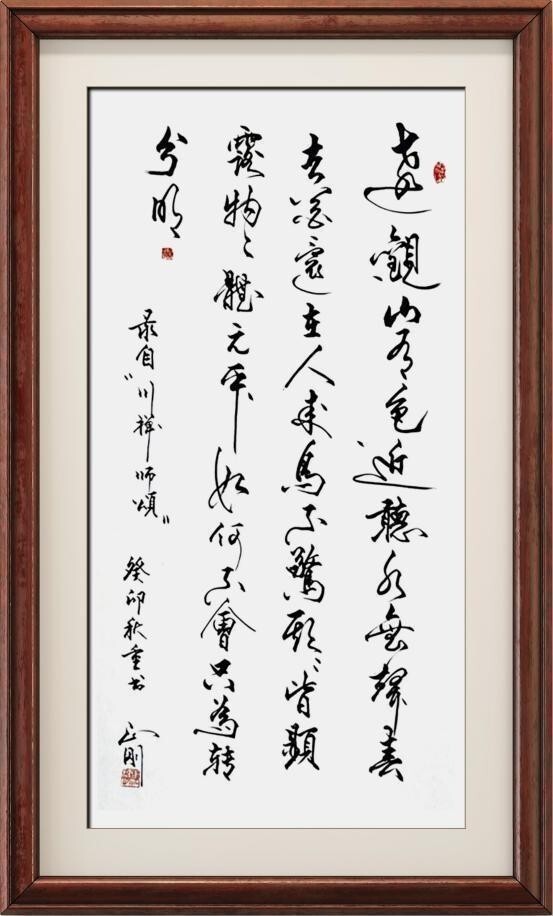 遠觀山有色近聽水無聲春
去花還在人來鳥不驚頭〻皆顯
露物〻體元平如何不會只為转
分明
录自"川禪師頌" 癸卯秋重书 正刚